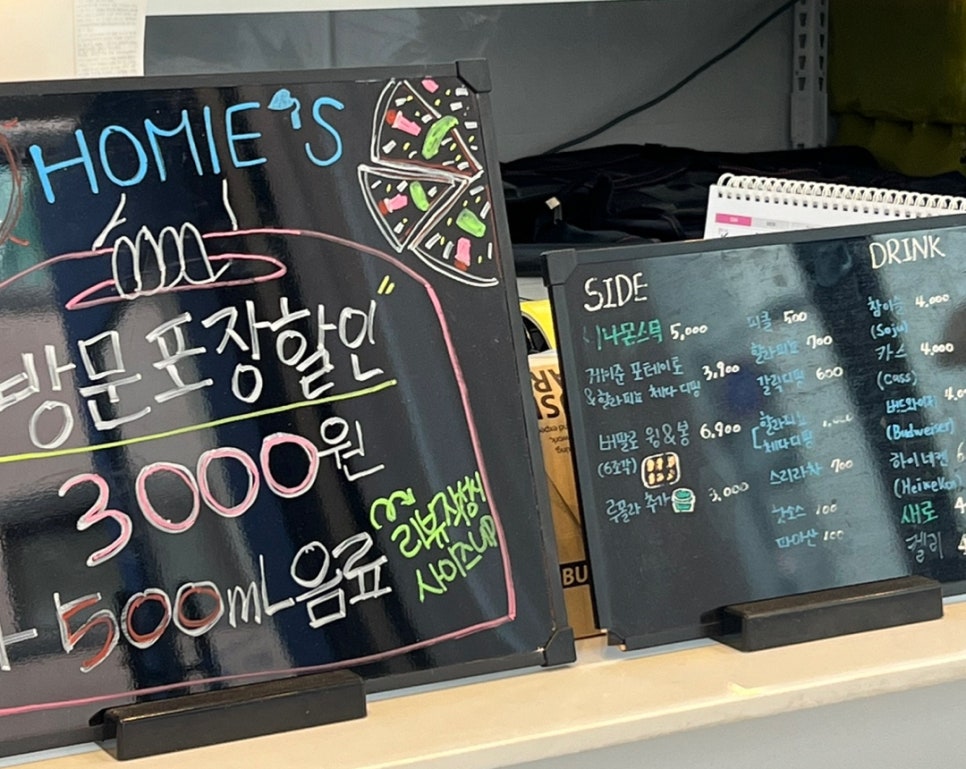 HOMIE'S
방문포장할인
3000원
+500mL음료
리뷰작성시
사이즈UP
SIDE
시나몬스틱 5,000
케이준 포테이토
&할라피뇨 체다 디핑 3,900
버팔로 윙&봉 6,900
(6조각)
루꼴라 추가 3,000
피클 500
할라피뇨 700
갈릭디핑 600
할라피뇨
체다디핑
스리라차 700
핫소스 100
파마산 100
DRINK
참이슬 4,000
(Soju)
카스 4,000
(Cass)
버드와이저
(Budweiser)
하이네켄
(Heineken)
새로
켈리